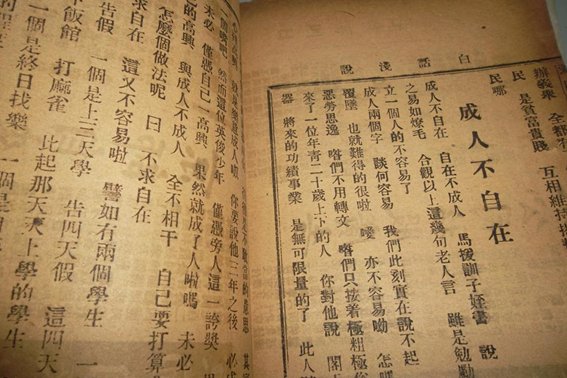 白話淺說
辦義衆 全都有
民 是貧富貴賤 互相維持
民哪
成人不自在
成人不自在 自在不成人 馬援訓子姪書 說
之易如燎毛 合觀以上這幾句老人言 雖是勉勵
立一個人的不容易了 我們此刻實在說不起
成人兩個字 談何容易
覆墜 也就難得的很啦 噯 亦不容易呦 怎
惡勞思逸 喒們不用轉文 喒們只按着極粗極
來了一位年青二十歲上下的人 你對他說 閣
器 將來的功績事業 是無可限量的了 此人
的意思 其
你要說他三年之後 必
然而這位英俊少年 僅憑旁人這一誇獎 果
未必 僅憑自己一高興 果然就成了人啦嗎 未必
的高興 與成人不成人 全不相干 自己要打算
怎麼個做法呢 曰 不求自在
不求自在 這又不容易啦 譬如有兩個學生 一
告假 一個是上三天學 告四天假 這四天
飯館 打麻雀 比起那天天上學的學生
一個是終日找樂 一個是